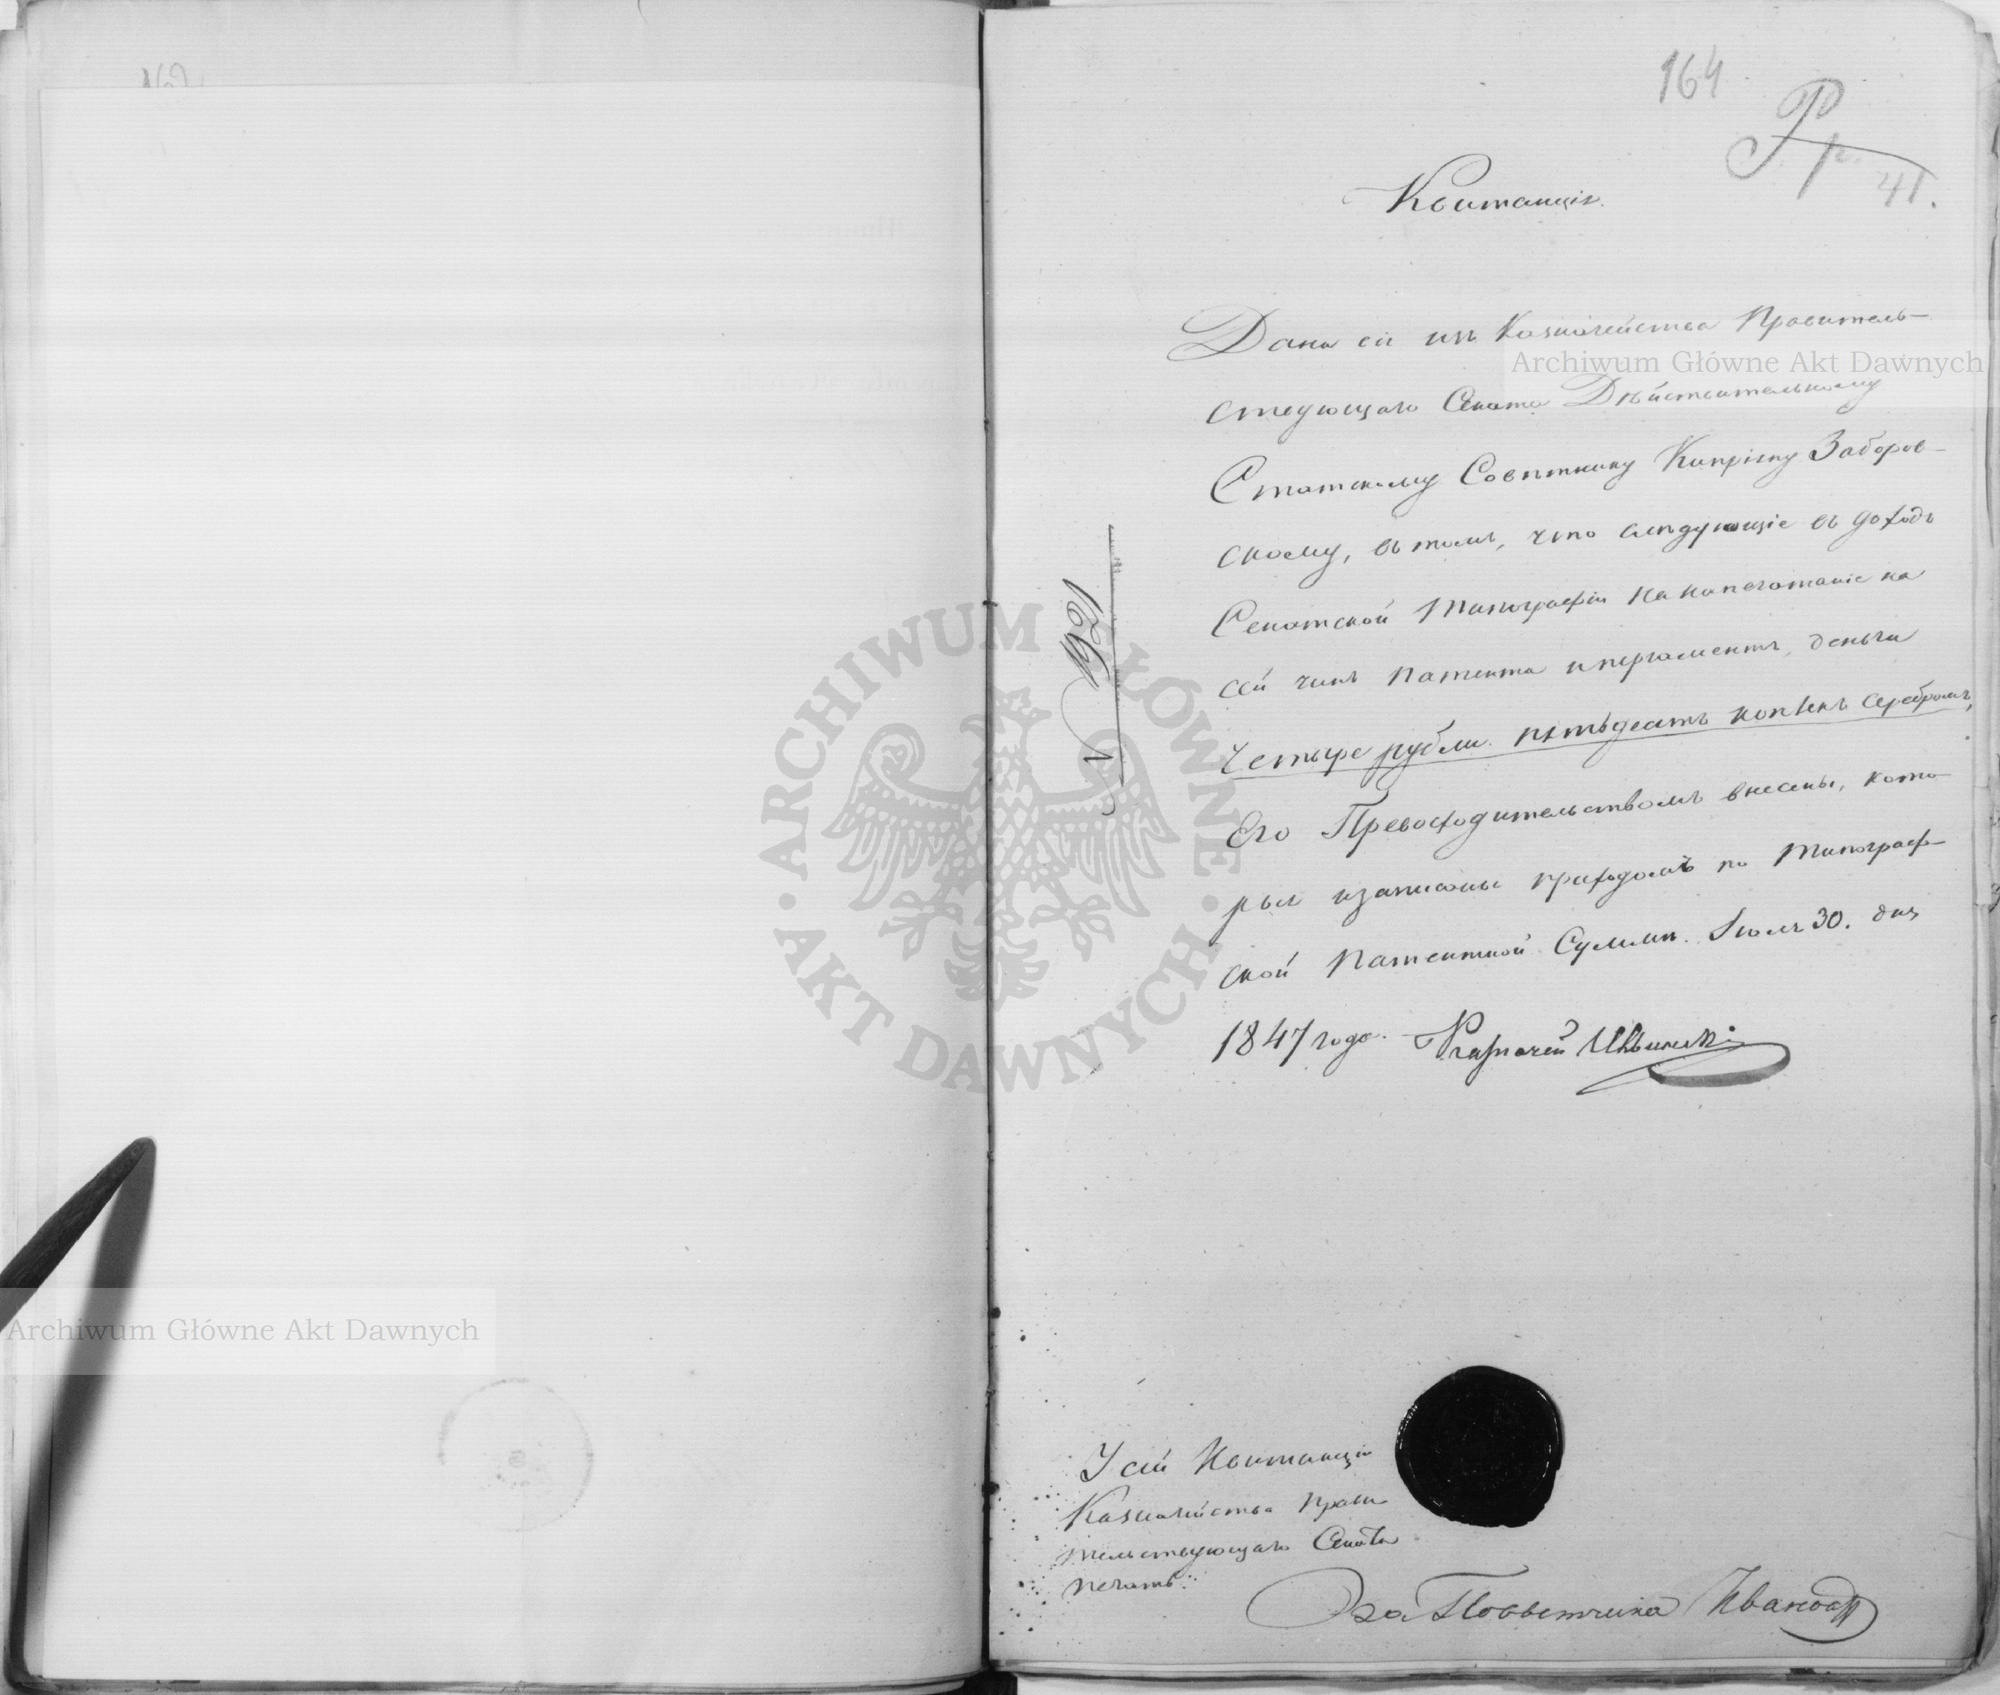 164
41.
Квитанція.
Дана сія изъ Казначейства Правитель-
ствующаго Сената Дѣйствительному
Статскому Совѣтнику Кипріяну Заборов-
скому, въ томъ, что слѣдующіе въ доходъ
Сенатской Типографіи на напечатаніе на
сей чинъ патента и пергаментъ, деньги
Четыре рубли пятьдесятъ копѣекъ серебромъ,
Его Превосходительствомъ внесены, кото-
рыя и записаны приходомъ по Типограф-
ской Патентной Суммѣ. Іюля 30. дня
1847 года. Казначей
У сей Квитанціи
Казначейства Прави
тельствующаго Сената
печать.
За Повытчика Ивановъ
Archiwum Główne Akt Dawnych
Archiwum Główne Akt Dawnych
ARCHIWUM GŁÓWNE AKT DAWNYCH